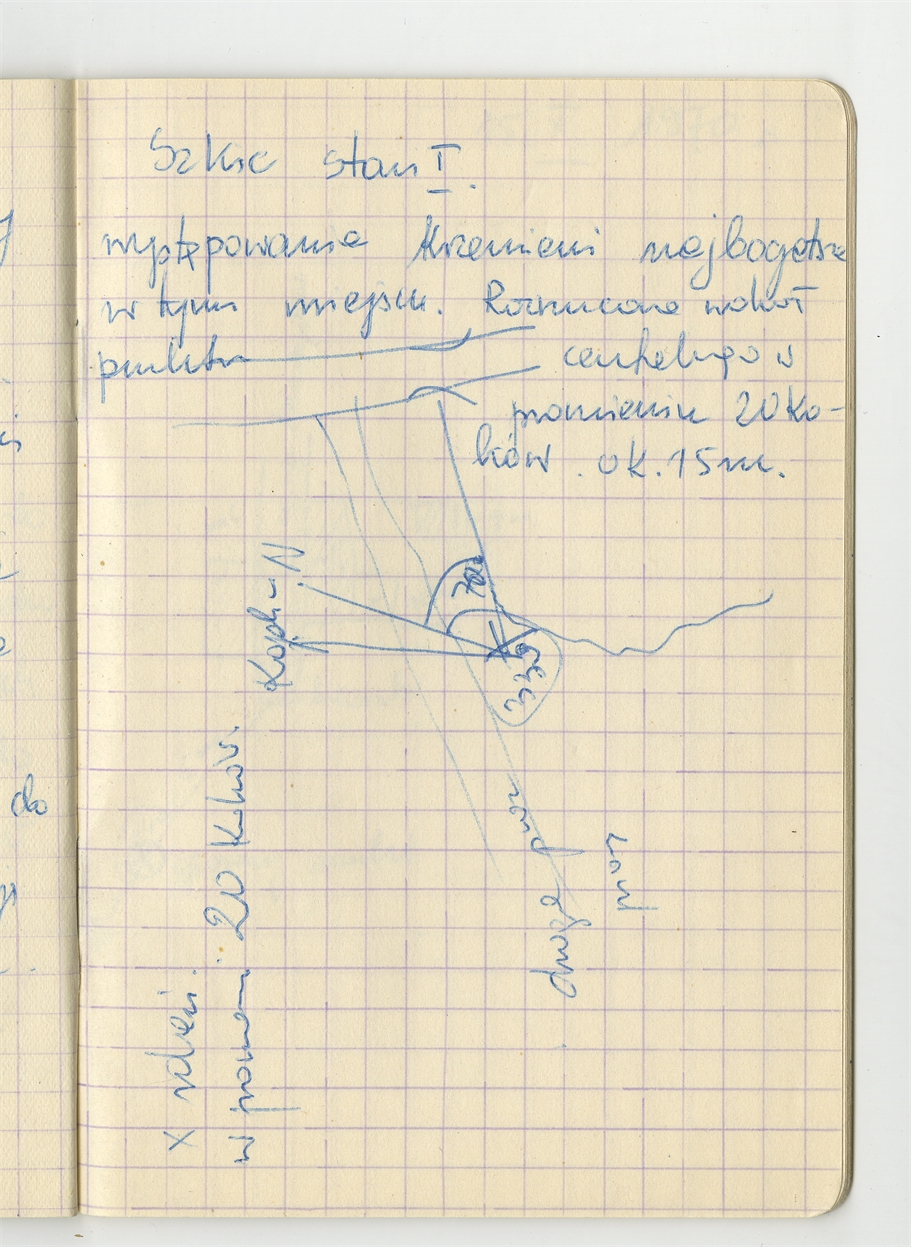 Szkic stan I.
występowanie krzemieni najbogatsze
w tym miejscu. Rozrzucone wokół
punktu centralnego w
promieniu 20 kro-
ków. ok. 15 m.
N
70
330
droga
x rdzeń.
w promieniu 20 kroków.